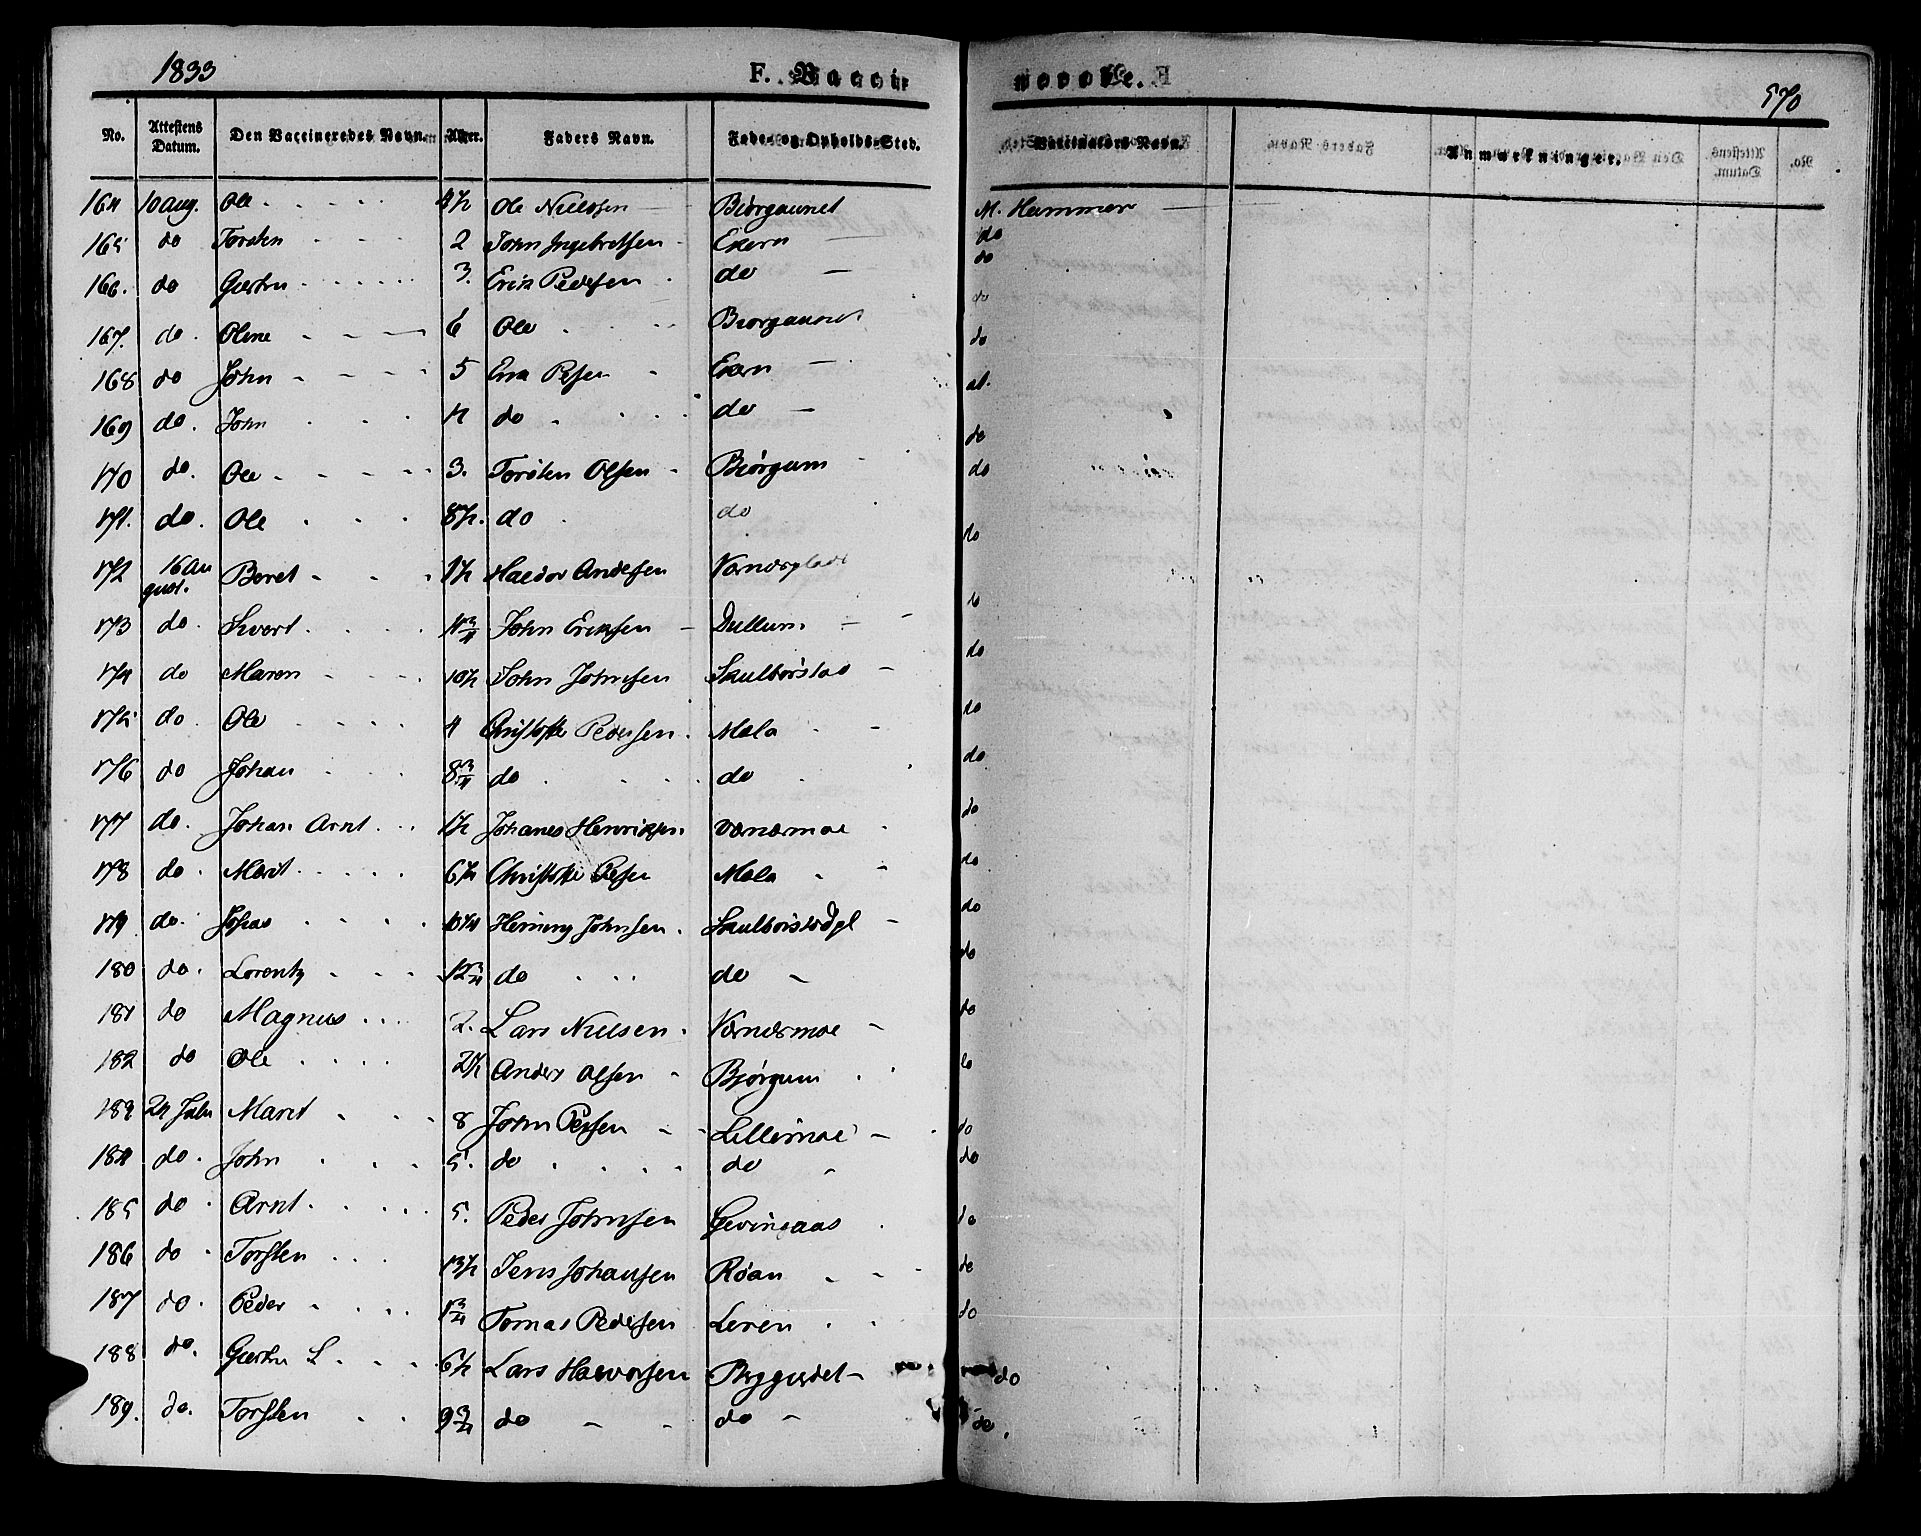 1833
F. Vaccinerede. F.
570
No. Attestens Datum. Den Vaccineredes Navn. Alder. Faders Navn. Føde- og Opholds-Sted. Vaccinators Navn. Anmærkninger.
164 10 Aug. Ole 4 1/2 Ole Nielssen Biørgaunet M. Hammer
165 do Torsten 2 John Ingebretsen Ekern do
166. do Giertru 3. Erik Pedersen do do
167. do. Olene 6 Ole Biørgaunet do
168 do John 5 Erik Pesen Ekern
169 do. John 4 do do do
170 do. Ole 3. Torsten Olsen Biørgum do
171. do. Ole 8 1/2. do do do
172 16 August. Beret 1 1/2 Haldor Andersen Værnesplads
173 do. Sivert 1 3/4 John Eriksen Dullum do
174 do Maren 10 1/2 John Johnsen Skulbørstad do
175 do. Ole 4 Christoffer Pedersen. Mæla do
176 do Johan 8 3/4 do do do
177 do. Johan Arnt 1 1/2 Johanes Henriksen Værnesmoe do
178 do. Marit 6 1/2 Christoffer Pesen Mæla do
179 do. Johas 10 1/4 Hening Johnsen. Skulbørstadpl do
180 do. Lorentz 12 3/4 do do do
181 do Magnus 2. Lars Nielsen. Værnesmoe do
182 do Ole 2 1/2 Anders Olsen Bjørgum do
183 24 Marit 8 John Pesen Lillemoe do
184 do. John 5. do do do
185 do. Arnt 5. Peder Johnsen Gevingaas do
186 do Torsten 13 1/2 Jens Johansen Roan do
187 do. Peder 1 3/4 Tomas Pedersen Leren do
188 do. Giertru L. 6 1/2 Lars Halvorsen do
189. do. Torsten 9 3/4 do do do.